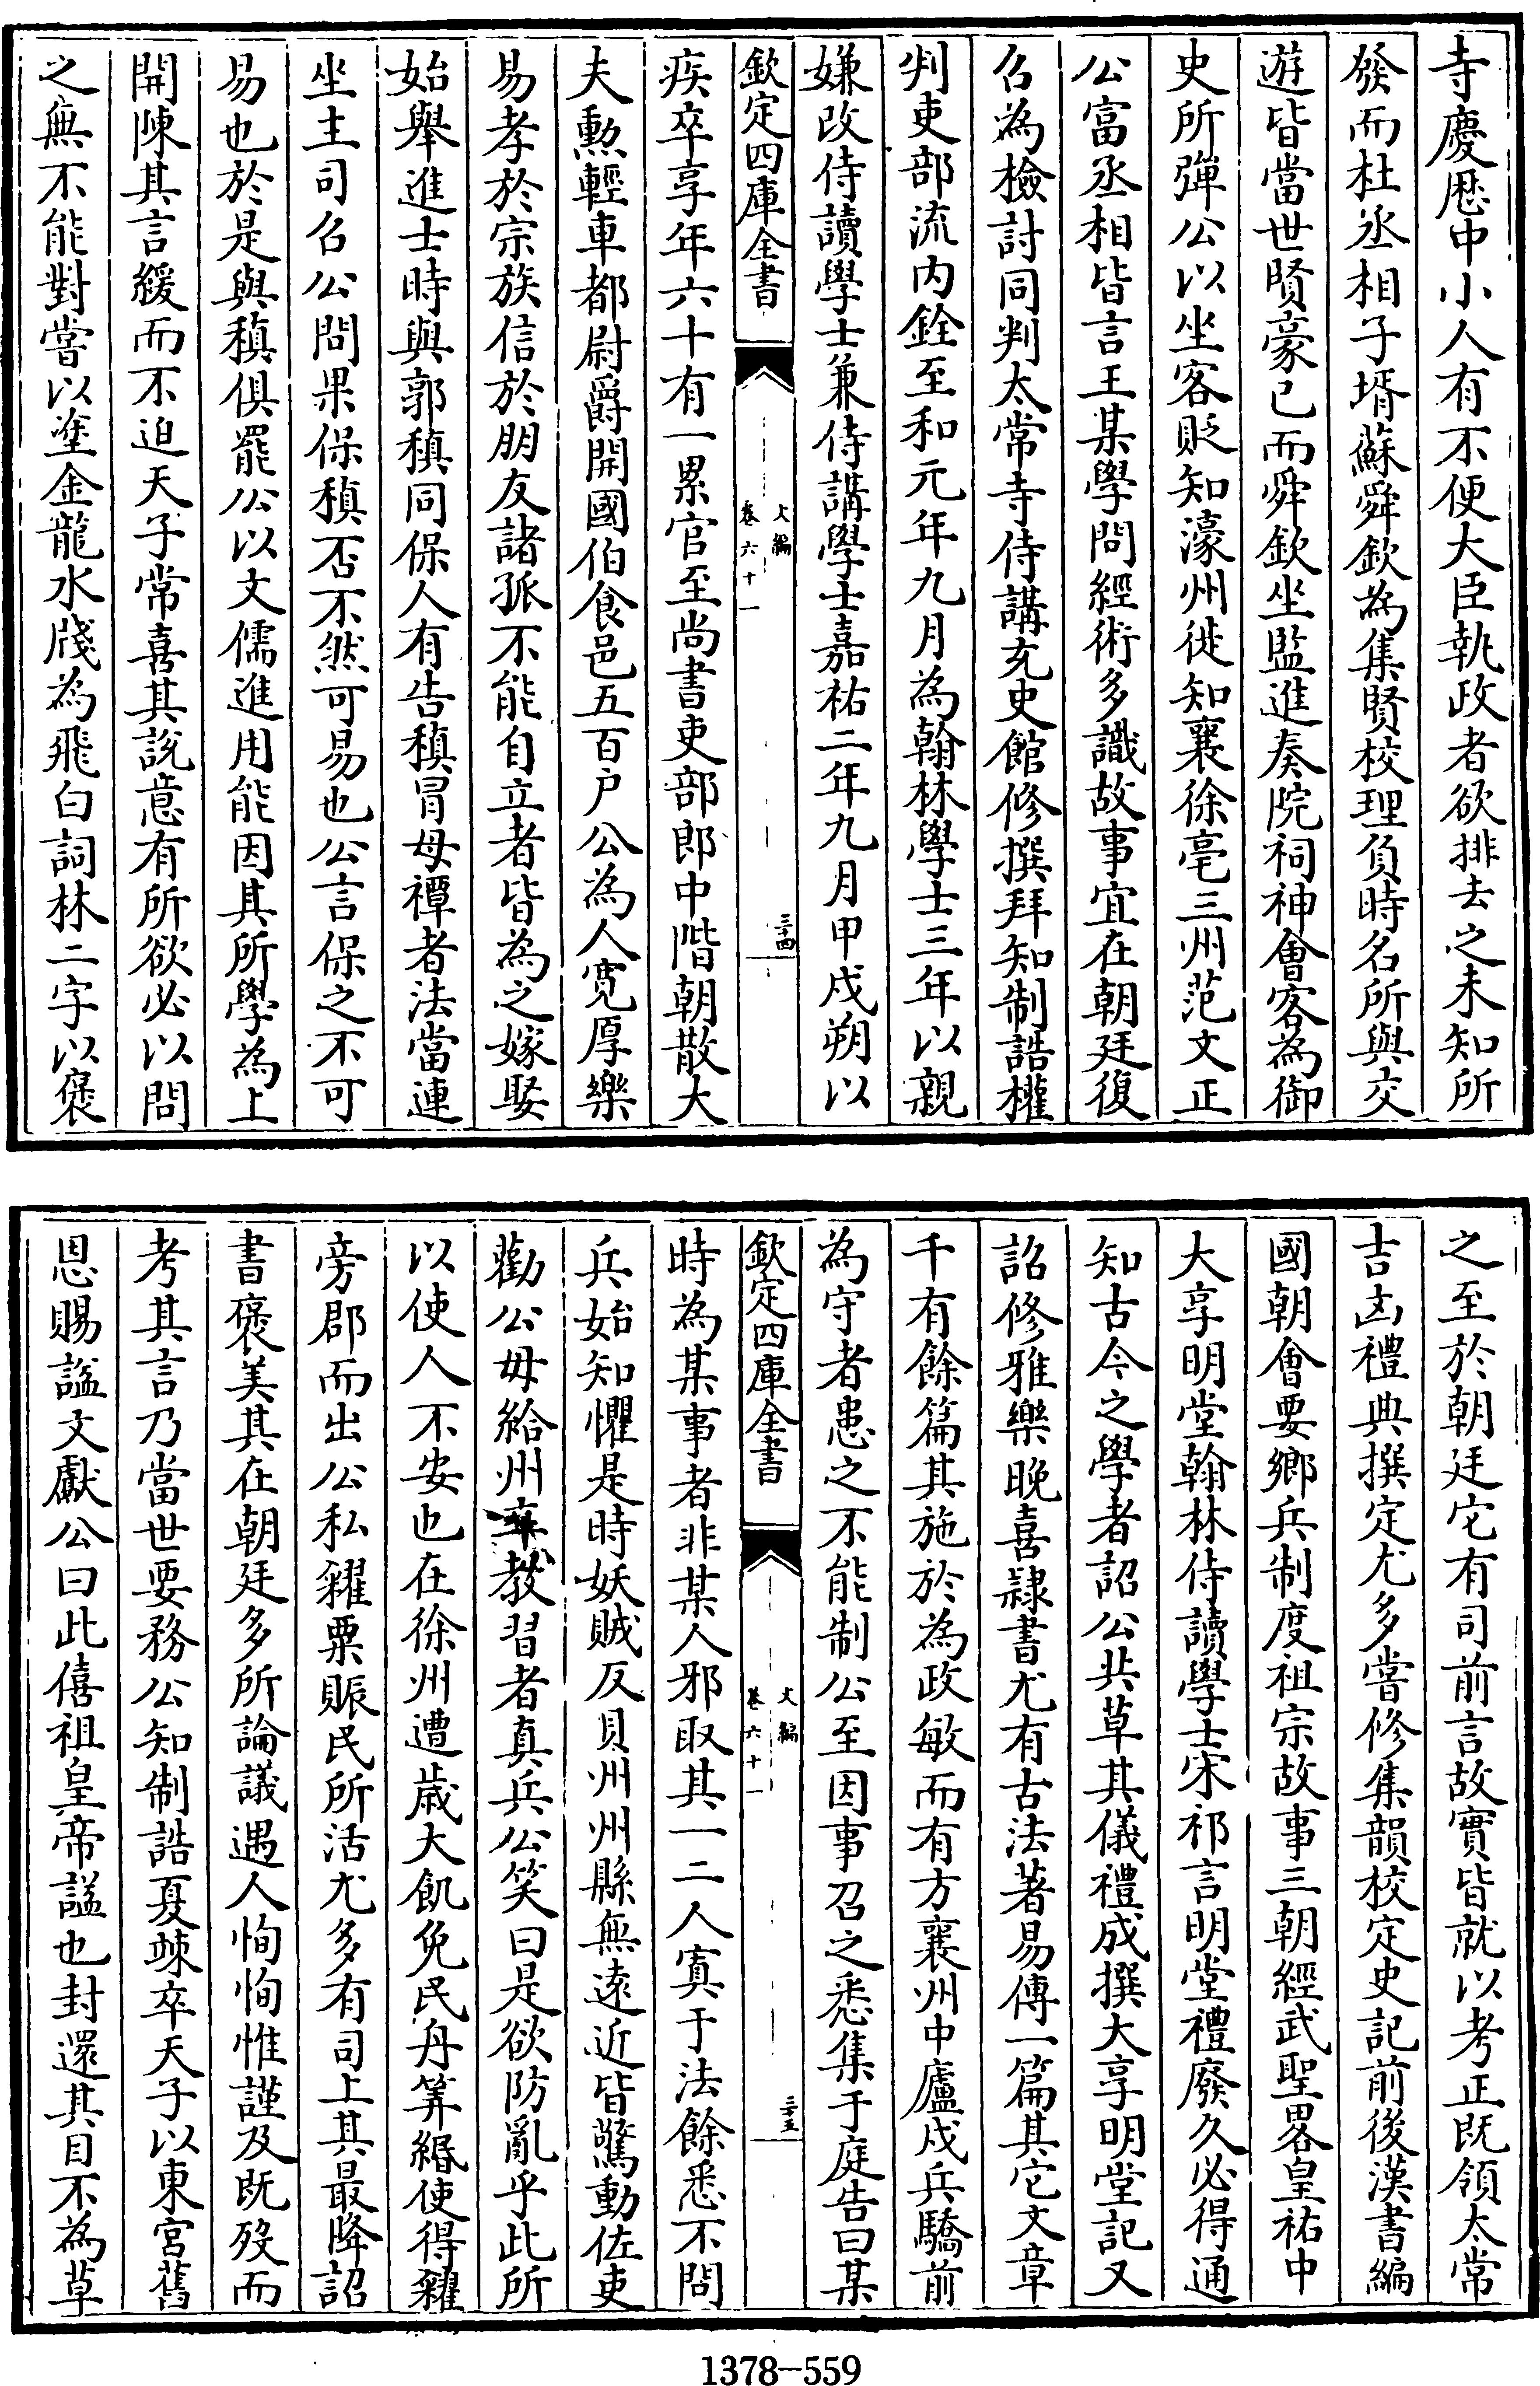 寺慶厯中小人有不便大臣執政者欲排去之未知所
發而杜丞相子壻蘇舜欽為集賢校理負時名所與交
遊皆當世賢豪已而舜欽坐監進奏院祠神會客為御
史所彈公以坐客貶知濠州徙知襄徐亳三州范文正
公富丞相皆言王某學問經術多識故事宜在朝廷復
召為檢討同判太常寺侍講充史館修撰拜知制誥權
判吏部流内銓至和元年九月為翰林學士三年以親
嫌改侍讀學士兼侍講學士嘉祐二年九月甲戍朔以
欽定四庫全書
文編
卷六十一
三十四
疾卒享年六十有一累官至尚書吏部郎中階朝散大
夫勲輕車都尉爵開國伯食邑五百户公為人寛厚樂
易孝於宗族信於朋友諸孤不能自立者皆為之嫁娶
始舉進士時與郭稹同保人有告稹冐母禫者法當連
坐主司召公問果保稹否不然可易也公言保之不可
易也於是與稹俱罷公以文儒進用能因其所學為上
開陳其言緩而不迫天子常喜其説意有所欲必以問
之無不能對嘗以塗金龍水牋為飛白詞林二字以褒
之至於朝廷它有司前言故實皆就以考正既領太常
吉凶禮典撰定尤多嘗修集韻校定史記前後漢書編
國朝會要鄉兵制度祖宗故事三朝經武聖畧皇祐中
大享明堂翰林侍讀學士宋祁言明堂禮廢久必得通
知古今之學者詔公共草其儀禮成撰大享明堂記又
詔修雅樂晚喜隸書尤有古法著易傳一篇其它文章
千有餘篇其施於為政敏而有方襄州中廬戍兵驕前
為守者患之不能制公至因事召之悉集于庭告曰某
欽定四庫全書
文編
卷六十一
三十五
時為某事者非某人邪取其一二人寘于法餘悉不問
兵始知懼是時妖賊反貝州州縣無逺近皆驚動佐吏
勸公毋給州卒教習者真兵公笑曰是欲防亂乎此所
以使人不安也在徐州遭歲大飢免民舟筭緡使得糴
旁郡而出公私糴粟賑民所活尤多有司上其最降詔
書褒美其在朝廷多所論議遇人恂恂惟謹及既歿而
考其言乃當世要務公知制誥夏竦卒天子以東宫舊
恩賜諡文獻公曰此僖祖皇帝諡也封還其目不為草
1378-559